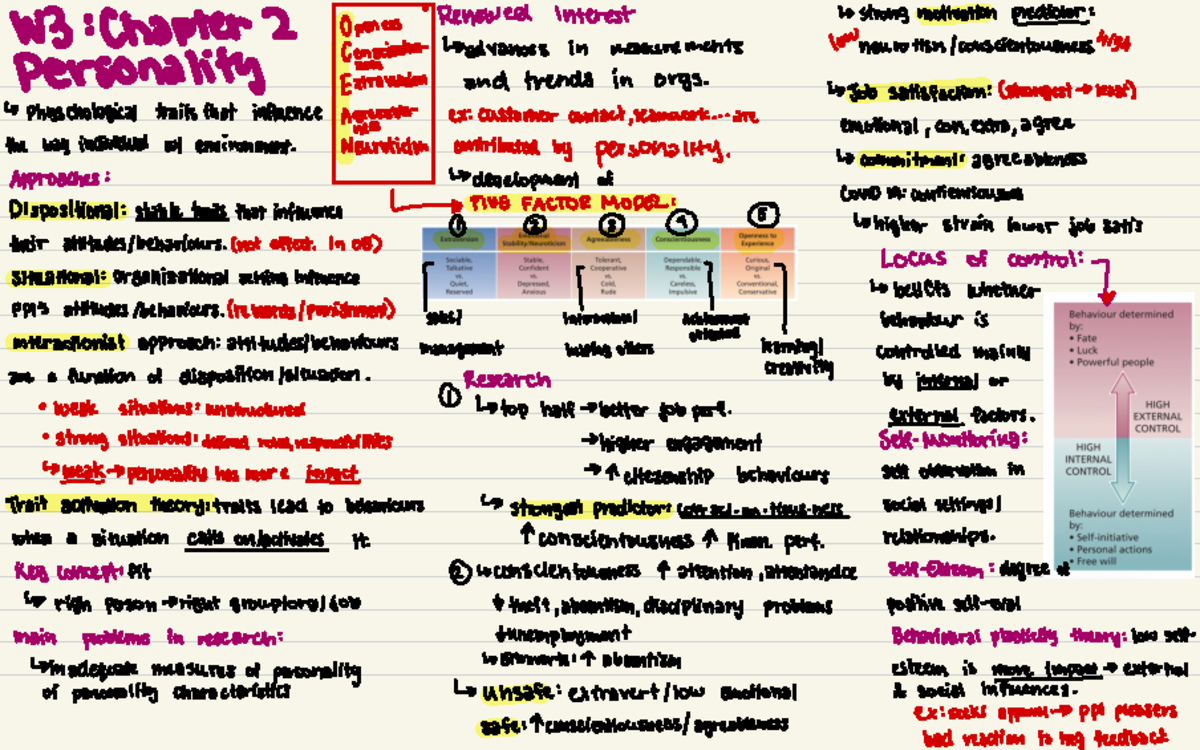 W3: Chapter 2
Personality
↳ Phychological traits that influence
the way individual w/ environment.
Approaches:
Dispositional: stable traits that influence
their attitudes/behaviours. (not effect. in OB)
Situational: organisational setting influence
ppl's attitudes/behaviours. (rewards/punishment)
Interactionist approach: attitudes/behaviours
are a function of disposition/situation.
• weak situations: unstructured
• strong situations: defined roles, responsibilities
↳ weak → personality has more impact
Trait activation theory: traits lead to behaviours
when a situation calls on/activates it
Key concept: fit
↳ right person → right group/org/job
main problems in research:
↳ inadequate measures of personality
of personality characteristics
Openness
Conscientiousness
Extraversion
Agreeableness
Neuroticism
Renewed Interest
↳ advances in measurements
and trends in orgs.
ex: customer contact, teamwork... are
contributed by personality.
↳ development of
FIVE FACTOR MODEL:
① ② ③ ④ ⑤
Extraversion
Sociable,
Talkative
vs.
Quiet,
Reserved
Emotional
Stability/Neuroticism
Stable,
Confident
vs.
Depressed,
Anxious
Agreeableness
Tolerant,
Cooperative
vs.
Cold,
Rude
Conscientiousness
Dependable,
Responsible
vs.
Careless,
Impulsive
Openness to
Experience
Curious,
Original
vs.
Conventional,
Conservative
sales/
management
interactional
helping others
achievement
oriented
learning/
creativity
Research
① ↳ top half → better job perf.
→ higher engagement
→ ↑ citizenship behaviours
↳ strongest predictor: con-sci-en-tious-ness
↑ conscientiousness ↑ perf.
② ↳ conscientiousness ↑ attention, attendance
↓ theft, absentism, disciplinary problems
↓ unemployment
↳ extraverts: ↑ absentism
↳ unsafe: extravert/low emotional
safe: ↑ conscientiousness/agreeableness
↳ strong motivation predictor:
low neurotism/conscientiousness
↳ Job satisfaction: (strongest → least)
emotional, con, extra, agree
↳ commitment: agreeableness
Covid 19: conscientiousness
↳ higher strain lower job satis
Locus of control:
↳ beliefs whether
behaviour is
controlled mainly
by internal or
external factors.
Behaviour determined
by:
• Fate
• Luck
• Powerful people
HIGH
EXTERNAL
CONTROL
HIGH
INTERNAL
CONTROL
Behaviour determined
by:
• Self-initiative
• Personal actions
• Free will
Self-Monitoring:
self observation in
social settings/
relationships.
Self-Esteem: degree of
positive self-eval
Behavioural plasticity theory: low self-
esteem is more impact → external
& social influences.
ex: seeks approval → ppl pleasers
bad reaction to neg feedback